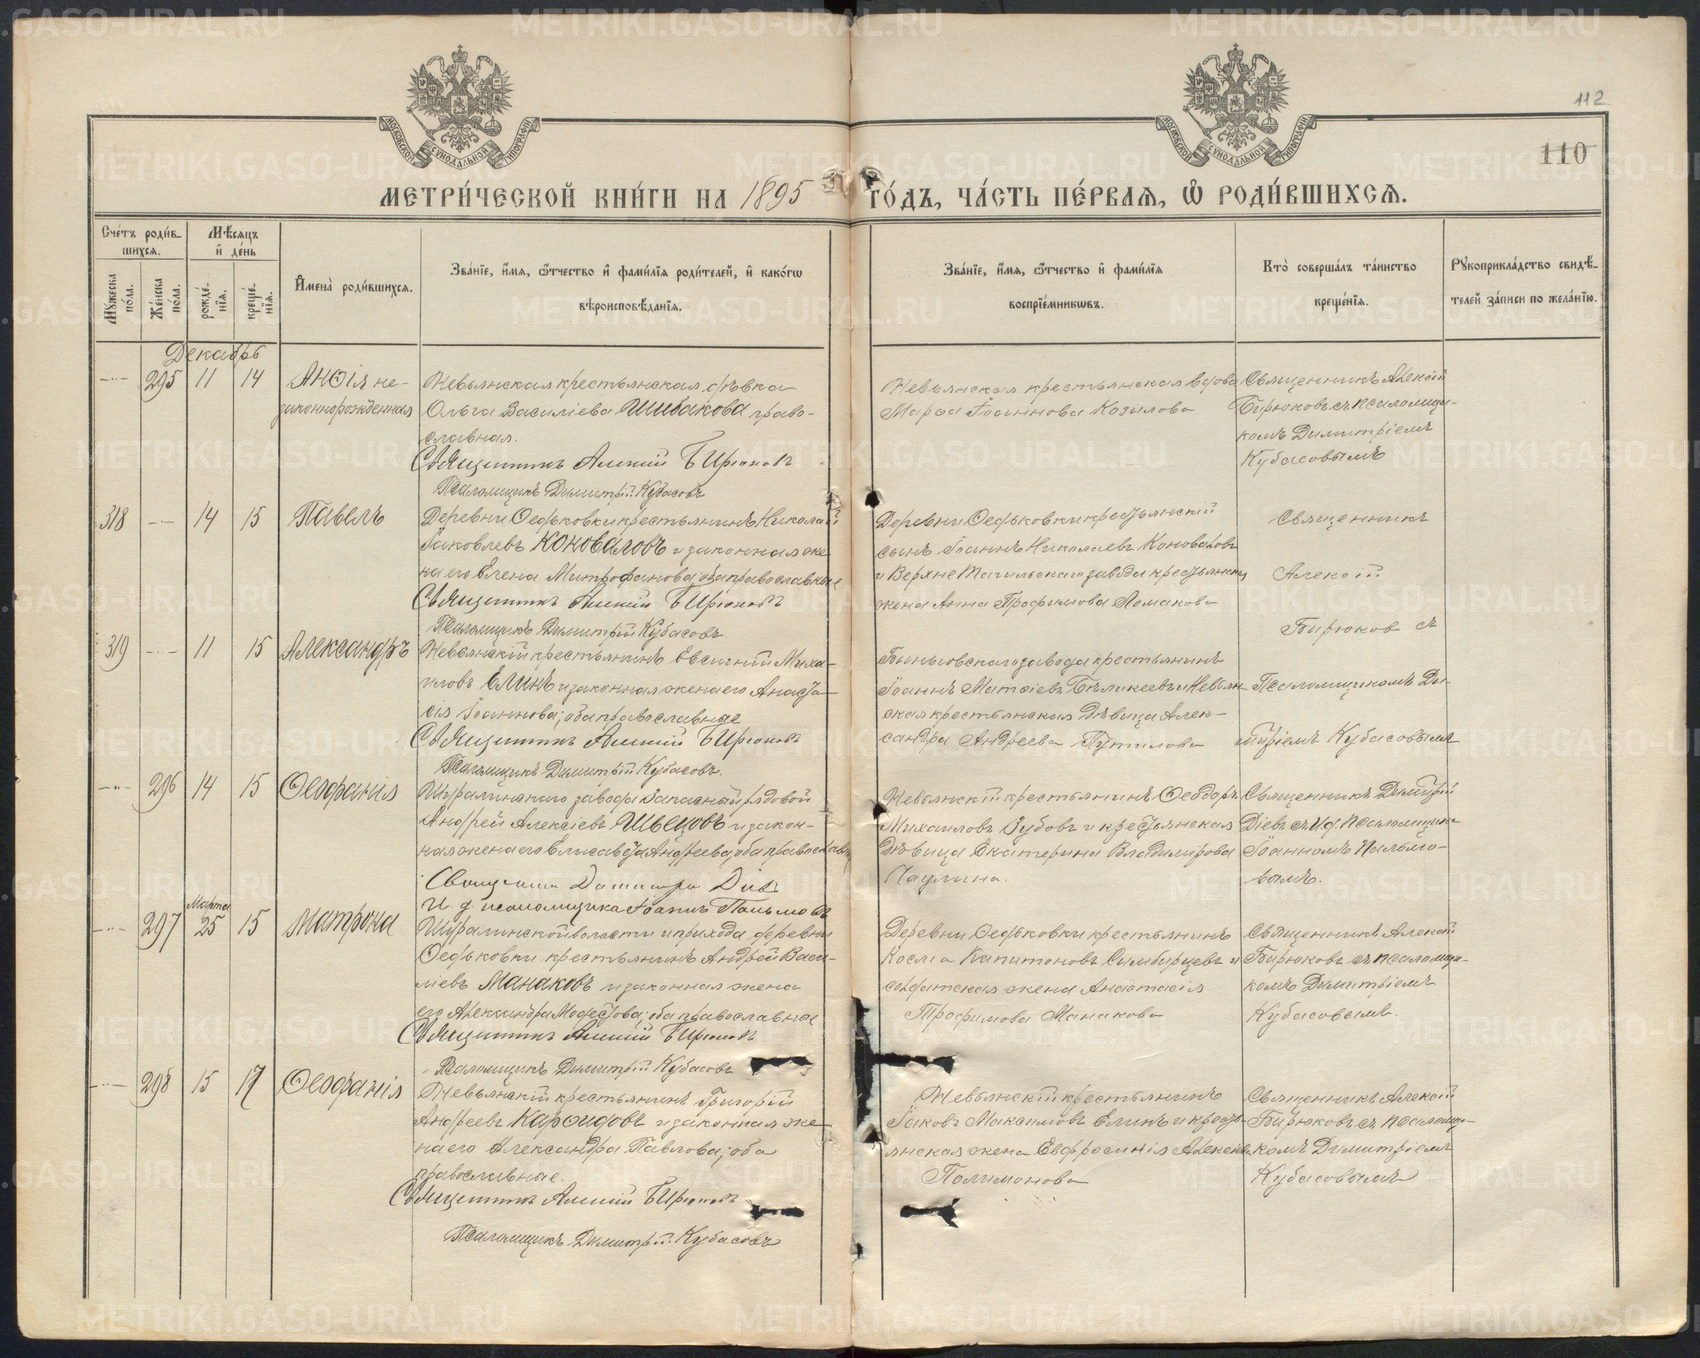 112
110
МЕТРИ́ЧЕСКОЙ КНИ́ГИ НА 1895 ГО́ДЪ, ЧА́СТЬ ПЕ́РВАЯ, Ѡ РОДИ́ВШИХСѦ.
Сче́тъ роди́в-
шихсѧ.
Мѣ́сѧцъ
и҆ де́нь
Мꙋ́жеска по́ла.
Же́нска по́ла.
рожде́-
нїѧ.
креще́-
нїѧ.
И҆мена̀ роди́вшихсѧ.
Зва́нїе, и҆́мѧ, ѻ҆́тчество и҆ фами́лїѧ роди́телей, и҆ како́гѡ
вѣроисповѣ́данїѧ.
Зва́нїе, и҆́мѧ, ѻ҆́тчество и҆ фами́лїѧ
воспрїе́мникѡвъ.
Кто̀ соверша́лъ та́инство
креще́нїѧ.
Рꙋкоприкла́дство свидѣ́-
телей за́писи по жела́нїю.
Декабрь
295 11 14 Анѳія не-
законнорожденная
Невьянская крестьянская дѣвка
Ольга Василіева Шибакова право-
славная.
Священникъ Алексій Бирюковъ
Псаломщикъ Димитрій Кубасовъ
Невьянская крестьянская вдова
Марѳа Іоаннова Козилова
Священникъ Алексій
Бирюковъ съ псаломщи-
комъ Димитріемъ
Кубасовымъ
318 14 15 Павелъ
Деревни Ѳедьковки крестьянинъ Николай
Іаковлевъ Коноваловъ и законная же-
на его Елена Митрофанова; оба православные
Священникъ Алексій Бирюковъ
Псаломщикъ Димитрій Кубасовъ
Деревни Ѳедьковки крестьянскій
сынъ Іоаннъ Николаевъ Коноваловъ
и Верхне Тагильскаго завода крестьянская
жена Анна Трофимова Ломакова
Священникъ
Алексій
Бирюков съ
319 11 15 Александръ
Невьянскій крестьянинъ Евсигній Миха-
иловъ Елинъ и законная жена его Анаста-
сія Іоаннова; оба православные
Священникъ Алексій Бирюковъ
Псаломщикъ Димитрій Кубасовъ.
Быньговскаго завода крестьянинъ
Іоаннъ Матѳіевъ Бѣликеевъ и Невьян-
ская крестьянская дѣвица Алек-
сандра Андреева Путилова
Псаломщикомъ Ди-
митріемъ Кубасовымъ
296 14 15 Ѳеофанія
Шуралинскаго завода запасный рядовой
Андрей Алексіевъ Швецовъ и закон-
ная жена его Елисавета Андреева; оба православн.
Священникъ Димитрій Діевъ
И. д. псаломщика Іоаннъ Пальмовъ
Невьянскій крестьянинъ Ѳеодоръ
Михаиловъ Зубовъ и крестьянская
дѣвица Екатерина Владимірова
Священникъ Димитрій
Діевъ съ И.д. псаломщика
Іоанномъ Пальмо-
вымъ.
Марта
297 25 15 Матрона
Шуралинской волости и прихода деревни
Ѳедьковки крестьянинъ Андрей Васи-
ліевъ Манаковъ и законная жена
его Александра Модестова; оба православные
Священникъ Алексій Бирюковъ
Псаломщикъ Димитрій Кубасовъ
Деревни Ѳедьковки крестьянинъ
Косма Капитоновъ Симбирцевъ и
солдатская жена Анастасія
Трофимова Манакова
Священникъ Алексій
Бирюковъ съ псаломщи-
комъ Димитріемъ
Кубасовымъ.
298 15 17 Ѳеофанія
Невьянскій крестьянинъ Григорій
Андреевъ Карфидовъ и законная же-
на его Александра Павлова; оба
православные.
Священникъ Алексій Бирюковъ
Псаломщикъ Димитрій Кубасовъ
Невьянскій крестьянинъ
Іаковъ Максимовъ Елинъ и кресть-
янская жена Евфросинія Алексіева
Полимонова
Священникъ Алексій
Бирюковъ съ псаломщи-
комъ Димитріемъ
Кубасовымъ
METRIKI.GASO-URAL.RU